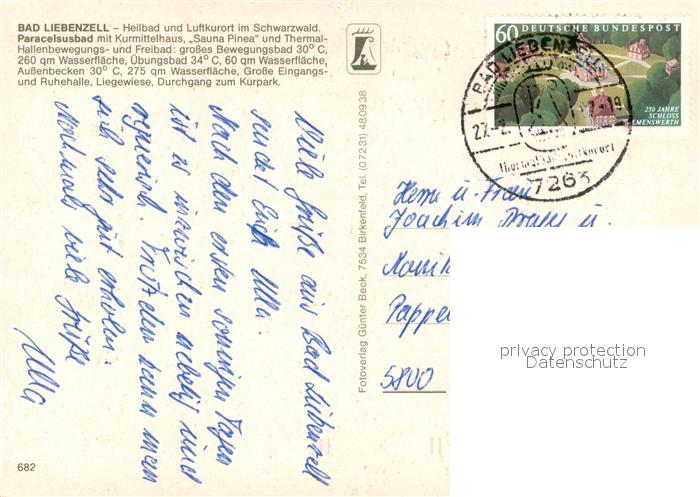 BAD LIEBENZELL – Heilbad und Luftkurort im Schwarzwald.
Paracelsusbad mit Kurmittelhaus, „Sauna Pinea“ und Thermal-
Hallenbewegungs- und Freibad: großes Bewegungsbad 30° C,
260 qm Wasserfläche, Übungsbad 34° C, 60 qm Wasserfläche,
Außenbecken 30° C, 275 qm Wasserfläche, Große Eingangs-
und Ruhehalle, Liegewiese, Durchgang zum Kurpark.
Viele Grüße aus Bad Liebenzell
sendet Euch Ulla.
Nach den ersten sonnigen Tagen
ist es inzwischen nebelig und
regnerisch. Trotzdem kann man
sich sehr gut erholen.
Nochmals viele Grüße
Ulla
682
Fotoverlag Günter Beck, 7534 Birkenfeld, Tel. (07231) 480938
60 DEUTSCHE BUNDESPOST
250 JAHRE
SCHLOSS
CLEMENSWERTH
BAD LIEBENZELL
7263
Herrn u. Frau
Joachim u.
5800
privacy protection
Datenschutz